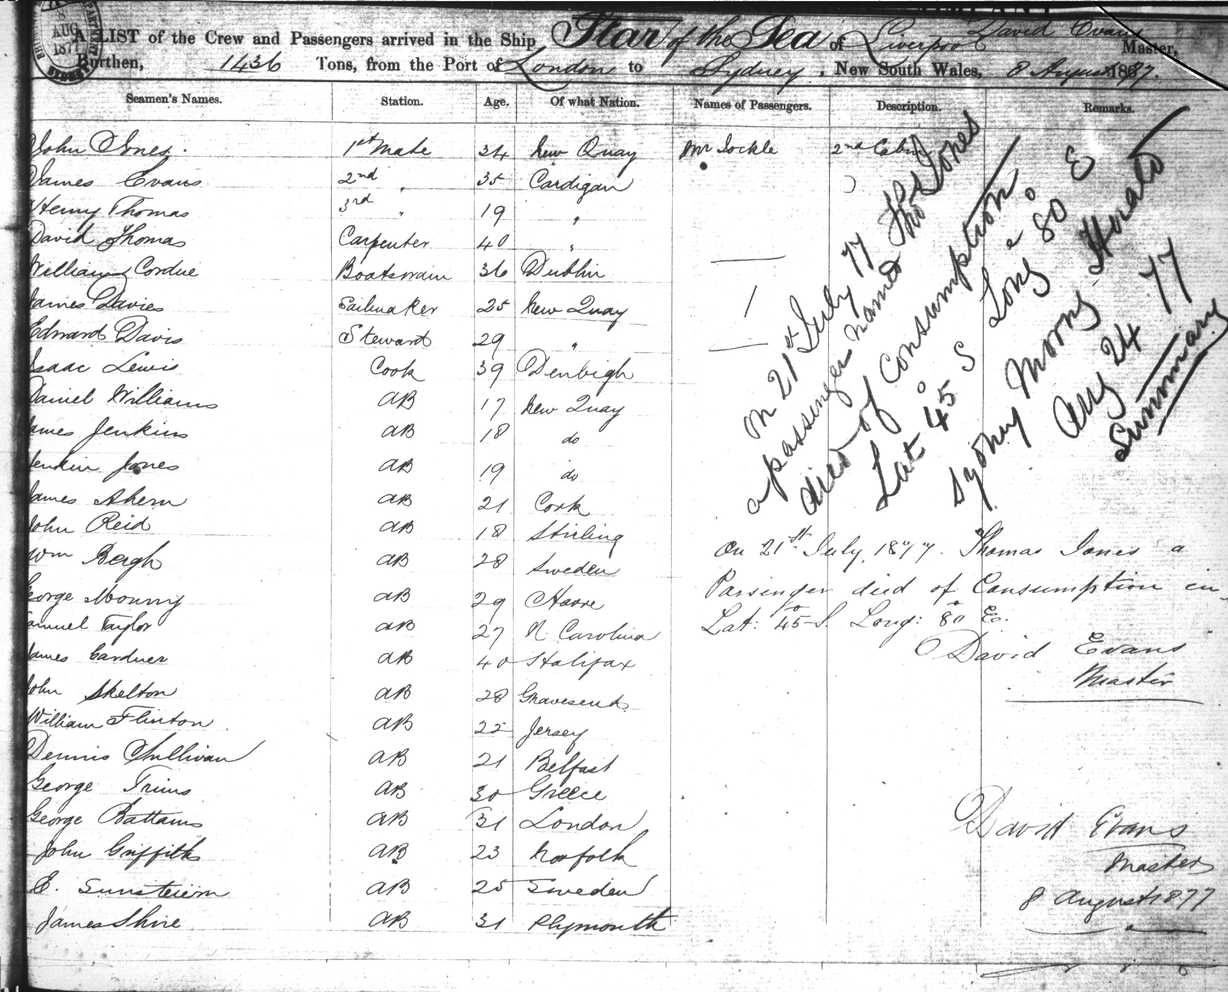 A LIST of the Crew and Passengers arrived in the Ship Star of the Sea of Liverpool David Evans Master,
Burthen, 1436 Tons, from the Port of London to Sydney, New South Wales, 8 August 1877.
Seamen's Names. Station. Age. Of what Nation. Names of Passengers. Description. Remarks.
John Jones. 1st Mate 34 New Quay Mr Jockle 2nd Cabin
James Evans 2nd " 35 Cardigan
Henry Thomas 3rd " 19 "
David Thomas Carpenter 40 "
William Cordue Boatswain 36 Dublin
James Davies Sailmaker 25 New Quay
Edward Davis Steward 29 "
Isaac Lewis Cook 39 Denbigh
Daniel Williams AB 17 New Quay
James Jenkins AB 18 do
Jenkin Jones AB 19 do
James Ahern AB 21 Cork
John Reid AB 18 Stirling
Wm Bergh AB 28 Sweden
George AB 29
Samuel Taylor AB 27 N Carolina
James Gardner AB 40 Halifax
John Skelton AB 28 Gravesend
William Flinton AB 22 Jersey
Dennis Sullivan AB 21 Belfast
George Trims AB 30 Greece
George Battams AB 31 London
John Griffiths AB 23 Norfolk
E. AB 25 Sweden
James Shire AB 31 Plymouth
On 21st July 77
a passenger named Thos Jones
died of Consumption
Lat 45° S Long 80° E
Sydney Morng Herald
Aug 24 77
Summary
On 21st July, 1877. Thomas Jones a
Passenger died of Consumption in
Lat: 45° S. Long: 80° E.
David Evans
Master
David Evans
Master
8 August 1877